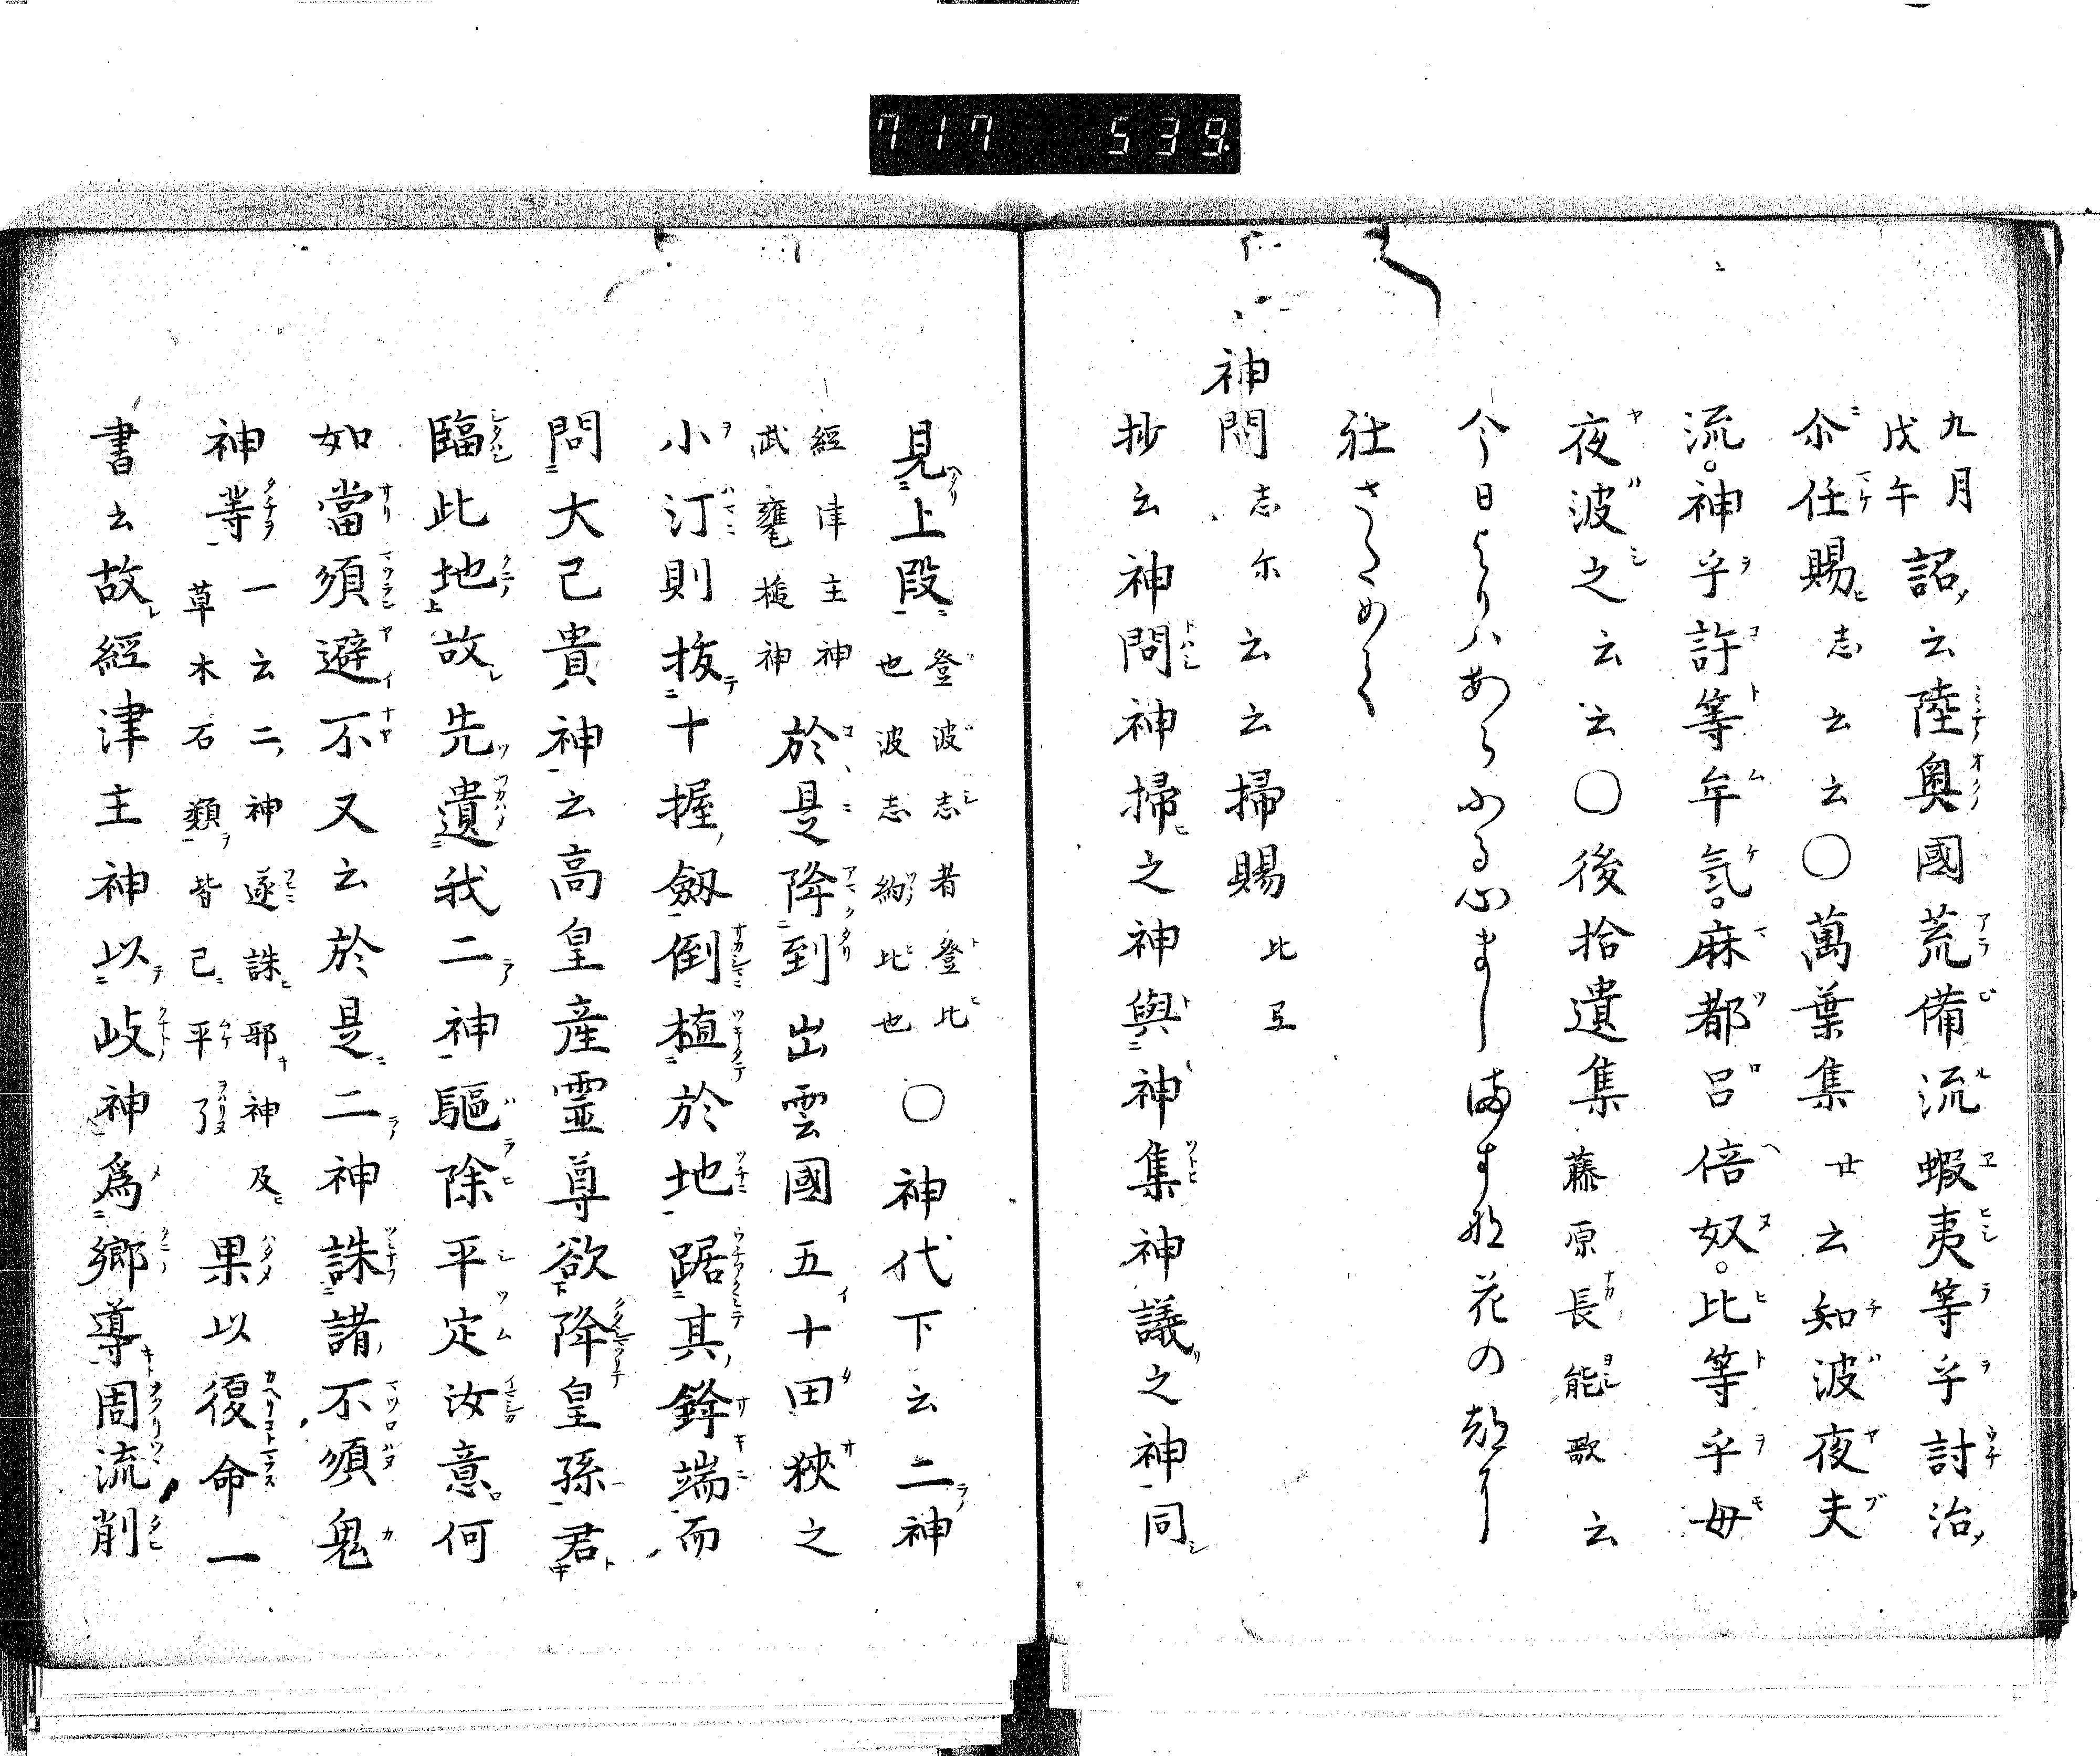 717 539
九月戊午詔云陸奥國荒備流蝦夷等乎討治
尓任賜志云云〇萬葉集廿云知波夜夫
流神乎許等牟氣麻都呂倍奴比等乎毋
夜波之云云〇後拾遺集藤原長能歌云
今日よりハあらふる心ましますな花の都に
社さためつ
神問志尓云云掃賜比旦
抄云神問神掃之神與神集神議之神同
見上段登波志者登比也波志約比也〇神代下云二神
經津主神武甕槌神於是降到出雲國五十田狹之
小汀則拔十握劔倒植於地踞其鋒端而
問大己貴神云高皇産霊尊欲降皇孫君
臨此地故先遺我二神驅除平定汝意何
如當須避不又云於是二神誅諸不須鬼
神等一云二神遂誅邪神及草木石類皆已平了果以復命一
書云故經津主神以岐神爲鄉導周流削